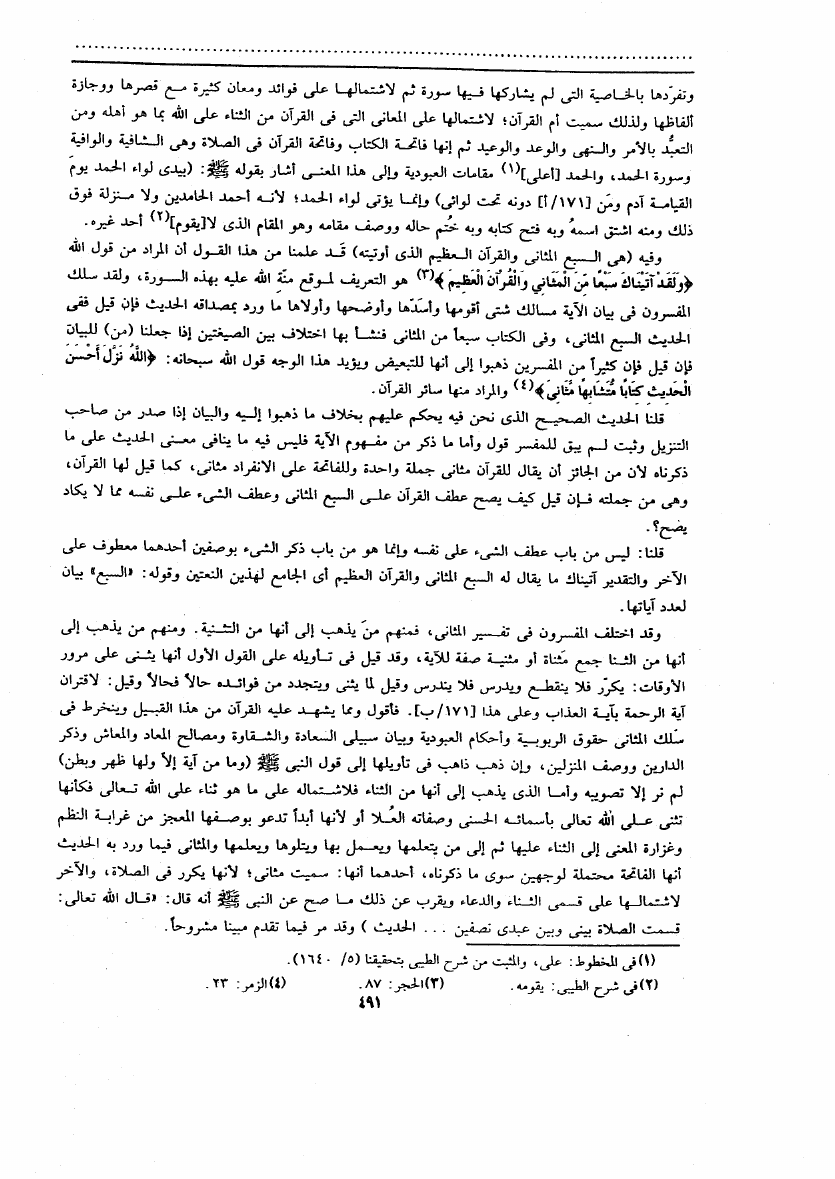 وتفرّدها بالخاصية التى لم يشاركها فيها سورة ثم لاشتمالها على فوائد ومعان كثيرة مع قصرها ووجازة
ألفاظها ولذلك سميت أم القرآن؛ لاشتمالها على المعانى التى فى القرآن من الثناء على الله بما هو أهله ومن
التعبُّد بالأمر والنهى والوعد والوعيد ثم إنها فاتحة الكتاب وفاتحة القرآن فى الصلاة وهى الشافية والوافية
وسورة الحمد، والحمد [أعلى](١) مقامات العبودية وإلى هذا المعنى أشار بقوله ﷺ: (بيدى لواء الحمد يومَ
القيامة آدم ومَن [١٧١/أ] دونه تحت لوائى) وإنما يؤتى لواء الحمد؛ لأنه أحمد الحامدين ولا منزلة فوق
ذلك ومنه اشتق اسمهُ وبه فتح كتابه وبه خُتم حاله ووصف مقامه وهو المقام الذى لا[يقوم](٢) أحد غيره.
وفيه (هى السبع المثانى والقرآن العظيم الذى أوتيته) قد علمنا من هذا القول أن المراد من قول الله
﴿وَلَقَدْ آتَيْنَاكَ سَبْعًا مِّنَ الْمَثَانِي وَالْقُرْآنَ الْعَظِيمَ﴾(٣) هو التعريف لموقع منّة الله عليه بهذه السورة، ولقد سلك
المفسرون فى بيان الآية مسالك شتى أقومها وأسدّها وأوضحها وأولاها ما ورد بمصداقه الحديث فإن قيل ففى
الحديث السبع المثانى، وفى الكتاب سبعاً من المثانى فنشأ بها اختلاف بين الصيغتين إذا جعلنا (من) للبيان
فإن قيل فإن كثيراً من المفسرين ذهبوا إلى أنها للتبعيض ويؤيد هذا الوجه قول الله سبحانه: ﴿اللَّهُ نَزَّلَ أَحْسَنَ
الْحَدِيثِ كِتَابًا مُّتَشَابِهًا مَّثَانِيَ﴾(٤) والمراد منها سائر القرآن.
قلنا الحديث الصحيح الذى نحن فيه يحكم عليهم بخلاف ما ذهبوا إليه والبيان إذا صدر من صاحب
التنزيل وثبت لم يبق للمفسر قول وأما ما ذكر من مفهوم الآية فليس فيه ما ينافى معنى الحديث على ما
ذكرناه لأن من الجائز أن يقال للقرآن مثانى جملة واحدة وللفاتحة على الانفراد مثانى، كما قيل لها القرآن،
وهى من جملته فإن قيل كيف يصح عطف القرآن على السبع المثانى وعطف الشىء على نفسه مما لا يكاد
يضح؟.
قلنا: ليس من باب عطف الشىء على نفسه وإنما هو من باب ذكر الشىء بوصفين أحدهما معطوف على
الآخر والتقدير آتيناك ما يقال له السبع المثانى والقرآن العظيم أى الجامع لهذين النعتين وقوله: «السبع» بيان
لعدد آياتها.
وقد اختلف المفسرون فى تفسير المثانى، فمنهم منَ يذهب إلى أنها من التثنية. ومنهم من يذهب إلى
أنها من الثنا جمع مَثناة أو مثنية صفة للآية، وقد قيل فى تأويله على القول الأول أنها يثنى على مرور
الأوقات: يكرّر فلا ينقطع ويدرس فلا يندرس وقيل لما يثنى ويتجدد من فوائده حالاً فحالاً وقيل: لاقتران
آية الرحمة بآية العذاب وعلى هذا [١٧١/ب]. فأقول ومما يشهد عليه القرآن من هذا القبيل وينخرط فى
سّلك المثانى حقوق الربوبية وأحكام العبودية وبيان سبيلى السعادة والشقاوة ومصالح المعاد والمعاش وذكر
الدارين ووصف المنزلين، وإن ذهب ذاهب فى تأويلها إلى قول النبى ﷺ (وما من آية إلاّ ولها ظهر وبطن)
لم نر إلا تصويبه وأما الذى يذهب إلى أنها من الثناء فلاشتماله على ما هو ثناء على الله تعالى فكأنها
تثنى على الله تعالى بأسمائه الحسنى وصفاته العُلا أو لأنها أبداً تدعو بوصفها المعجز من غرابة النظم
وغزارة المعنى إلى الثناء عليها ثم إلى من يتعلمها ويعمل بها ويتلوها ويعلمها والمثانى فيما ورد به الحديث
أنها الفاتحة محتملة لوجهين سوى ما ذكرناه، أحدهما أنها: سميت مثانى؛ لأنها يكرر فى الصلاة، والآخر
لاشتمالها على قسمى الثناء والدعاء ويقرب عن ذلك ما صح عن النبى ﷺ أنه قال: «قال الله تعالى:
قسمت الصلاة بينى وبين عبدى نصفين ... الحديث ) وقد مر فيما تقدم مبينا مشروحاً.
(١)فى المخطوط: على، والمثبت من شرح الطيبى بتحقيقنا (٥/ ١٦٤٠).
(٢)فى شرح الطيبى: يقومه. (٣)الحجر: ٨٧. (٤)الزمر: ٢٣.
٤٩١